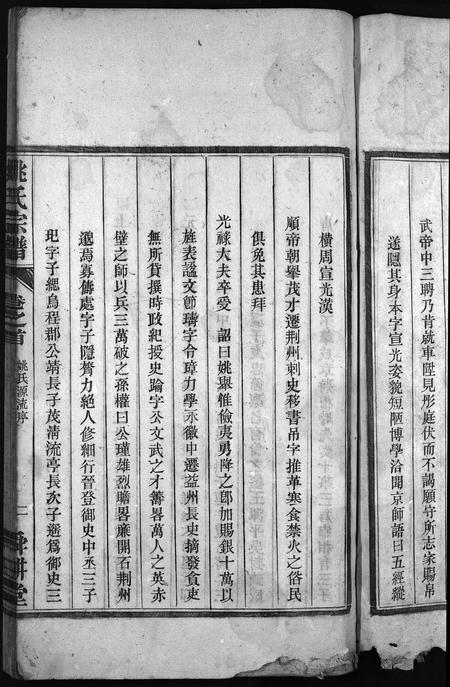 武帝中三聘乃肯就車陞見彤庭伏而不謁願守所志家賜帛
遂隱其身本字宣光姿貌短陋博學洽聞京師語曰五經縱
橫周宣光漢
順帝朝舉茂才遷荊州刺史移書吊字推革寒食禁火之俗民
俱免其患拜
光祿大夫卒憂 詔曰姚舉惟儉夷勇降之郎加賜銀十萬以
旌表謚文節璹字令璋力學永徽中遷益州長史摘發貪吏
無所貸撰時政紀援史踰字公文武之才籌畧萬人之英赤
壁之師以兵三萬破之孫權曰公瑾雄烈膽畧廉開石荊州
邈焉寡儔處字子隱膂力絕人修細行晉登御史中丞三子
玘字子經烏程郡公靖長子茂清流亭長次子遜為御史三
姚氏宗譜
卷之首
姚氏源流序
一
舜耕堂